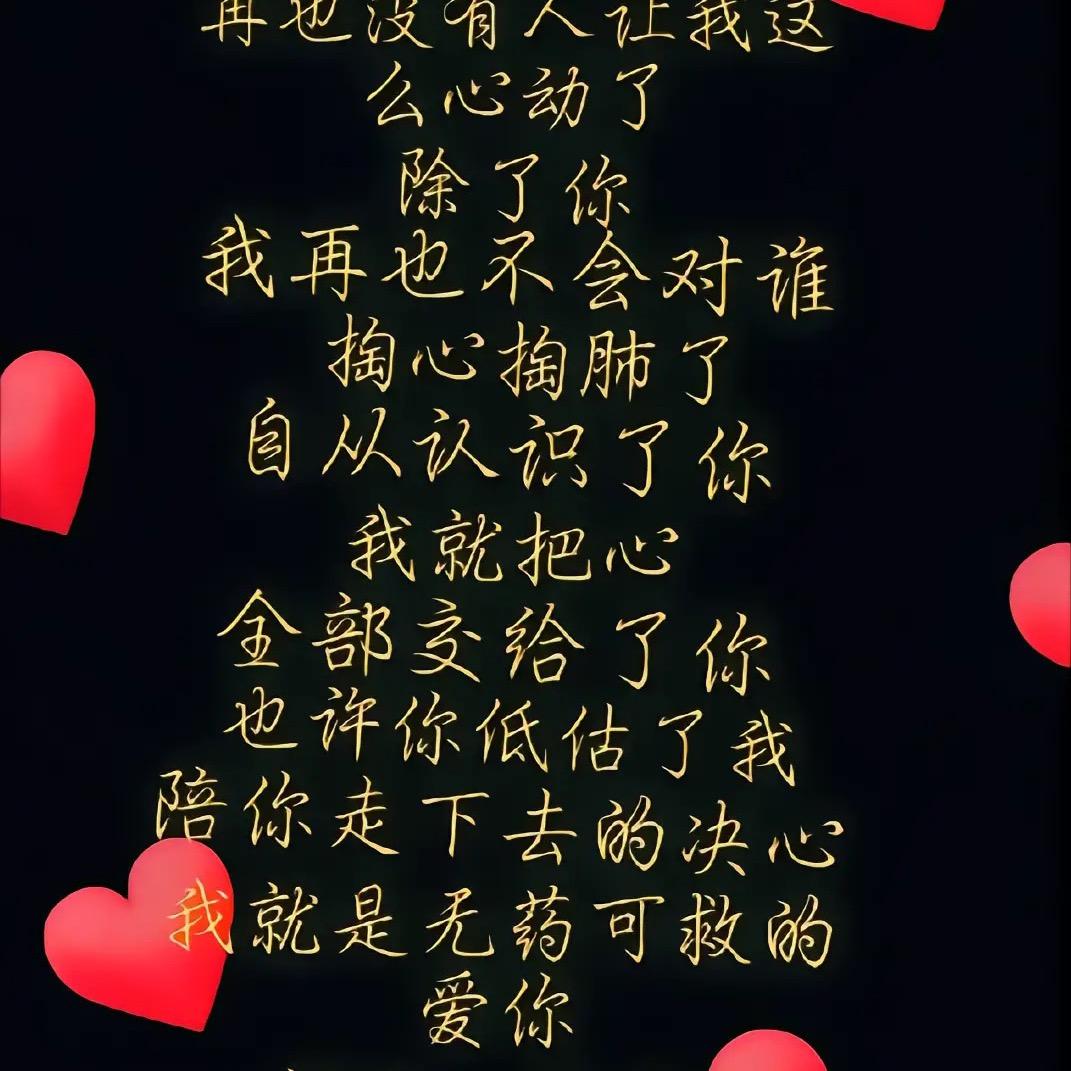 再也没有人让我这
么心动了
除了你
我再也不会对谁
掏心掏肺了
自从认识了你
我就把心
全部交给了你
也许你低估了我
陪你走下去的决心
我就是无药可救的
爱你